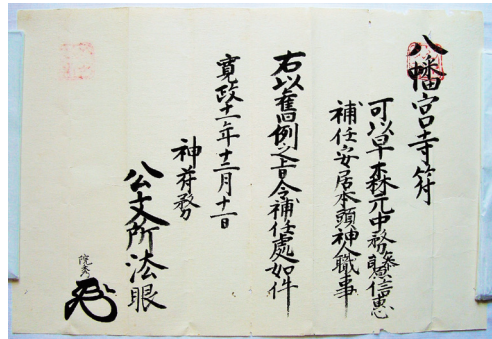 八幡宮寺符
可以早森元中務藤信恵
補任安居本頭神人職事
右以舊例之旨令補任處如件
寛政十一年十二月十一日
神前務
公文所法眼
院秀